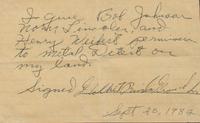 I give Bob Johnson
Norm Lincoln, and
Henry Weikert permission
to metal detect on
my land.
Signed
Sept 25, 1982